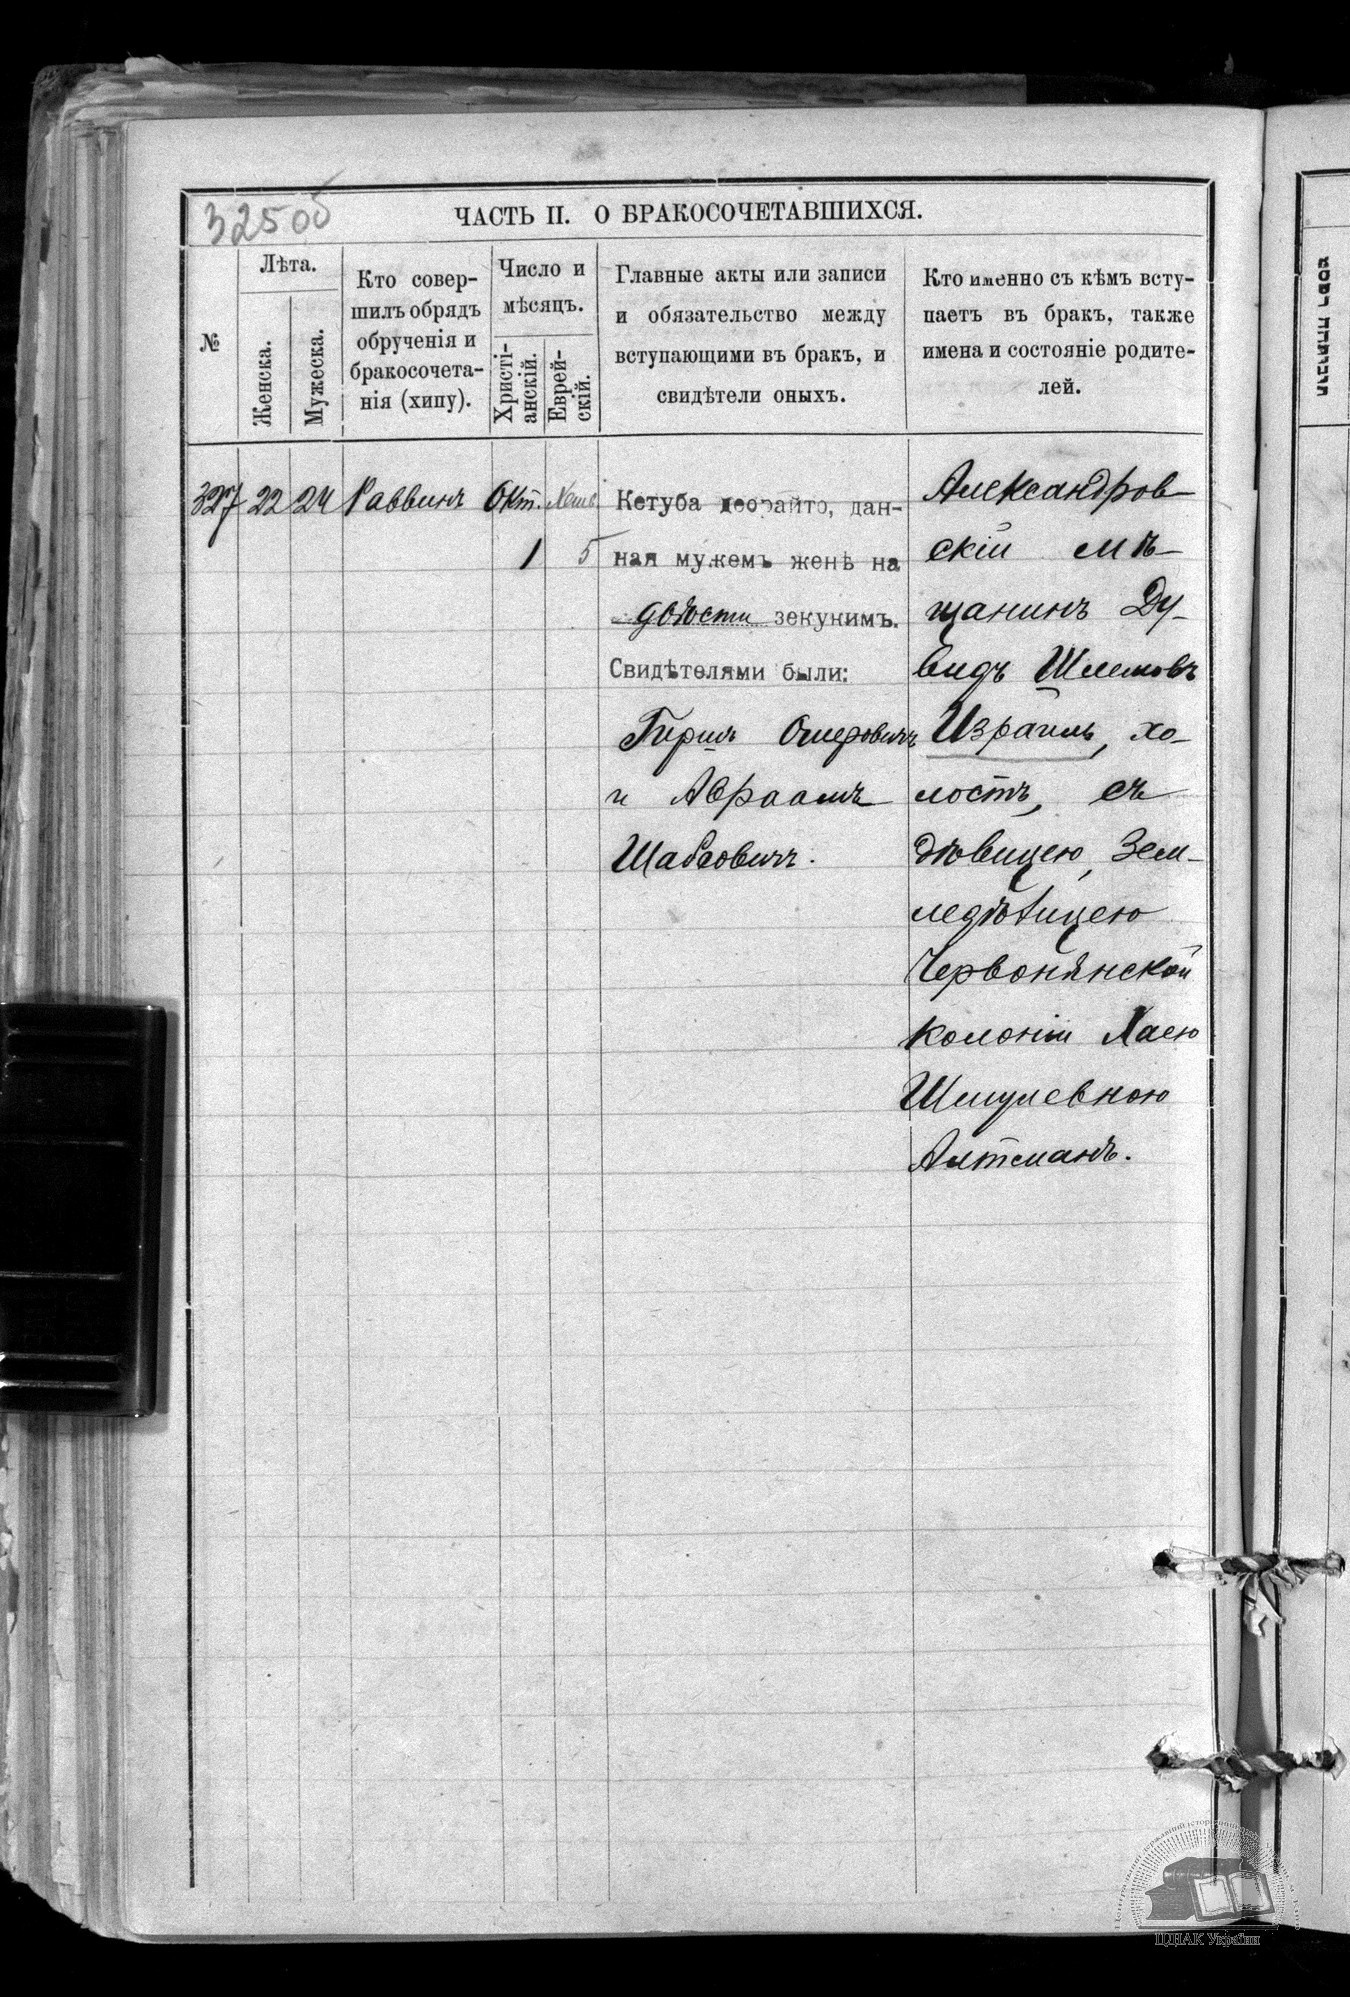 325об
ЧАСТЬ II. О БРАКОСОЧЕТАВШИХСЯ.
№
Лѣта.
Женска.
Мужеска.
Кто совер-
шилъ обрядъ
обрученія и
бракосочета-
нія (хипу).
Число и
мѣсяцъ.
Христі-
анскій.
Еврей-
скій.
Главные акты или записи
и обязательство между
вступающими въ бракъ, и
свидѣтели оныхъ.
Кто именно съ кѣмъ всту-
паетъ въ бракъ, также
имена и состояніе родите-
лей.
327
22
24
Раввинъ
Окт.
1
Хешв.
5
Кетуба деорайто, дан-
ная мужемъ женѣ на
двѣсти зекукимъ.
Свидѣтелями были:
Гершъ Ошеровичъ
и Авраамъ
Шабсовичъ.
Александров-
скій мѣ-
щанинъ Ду-
видъ Шлемовъ
Израиль, хо-
лостъ, съ
дѣвицею, Зем-
ледѣлицею
Червонянской
колоніи Хаею
Шмулевною
Алтманъ.
ЦДІАК України